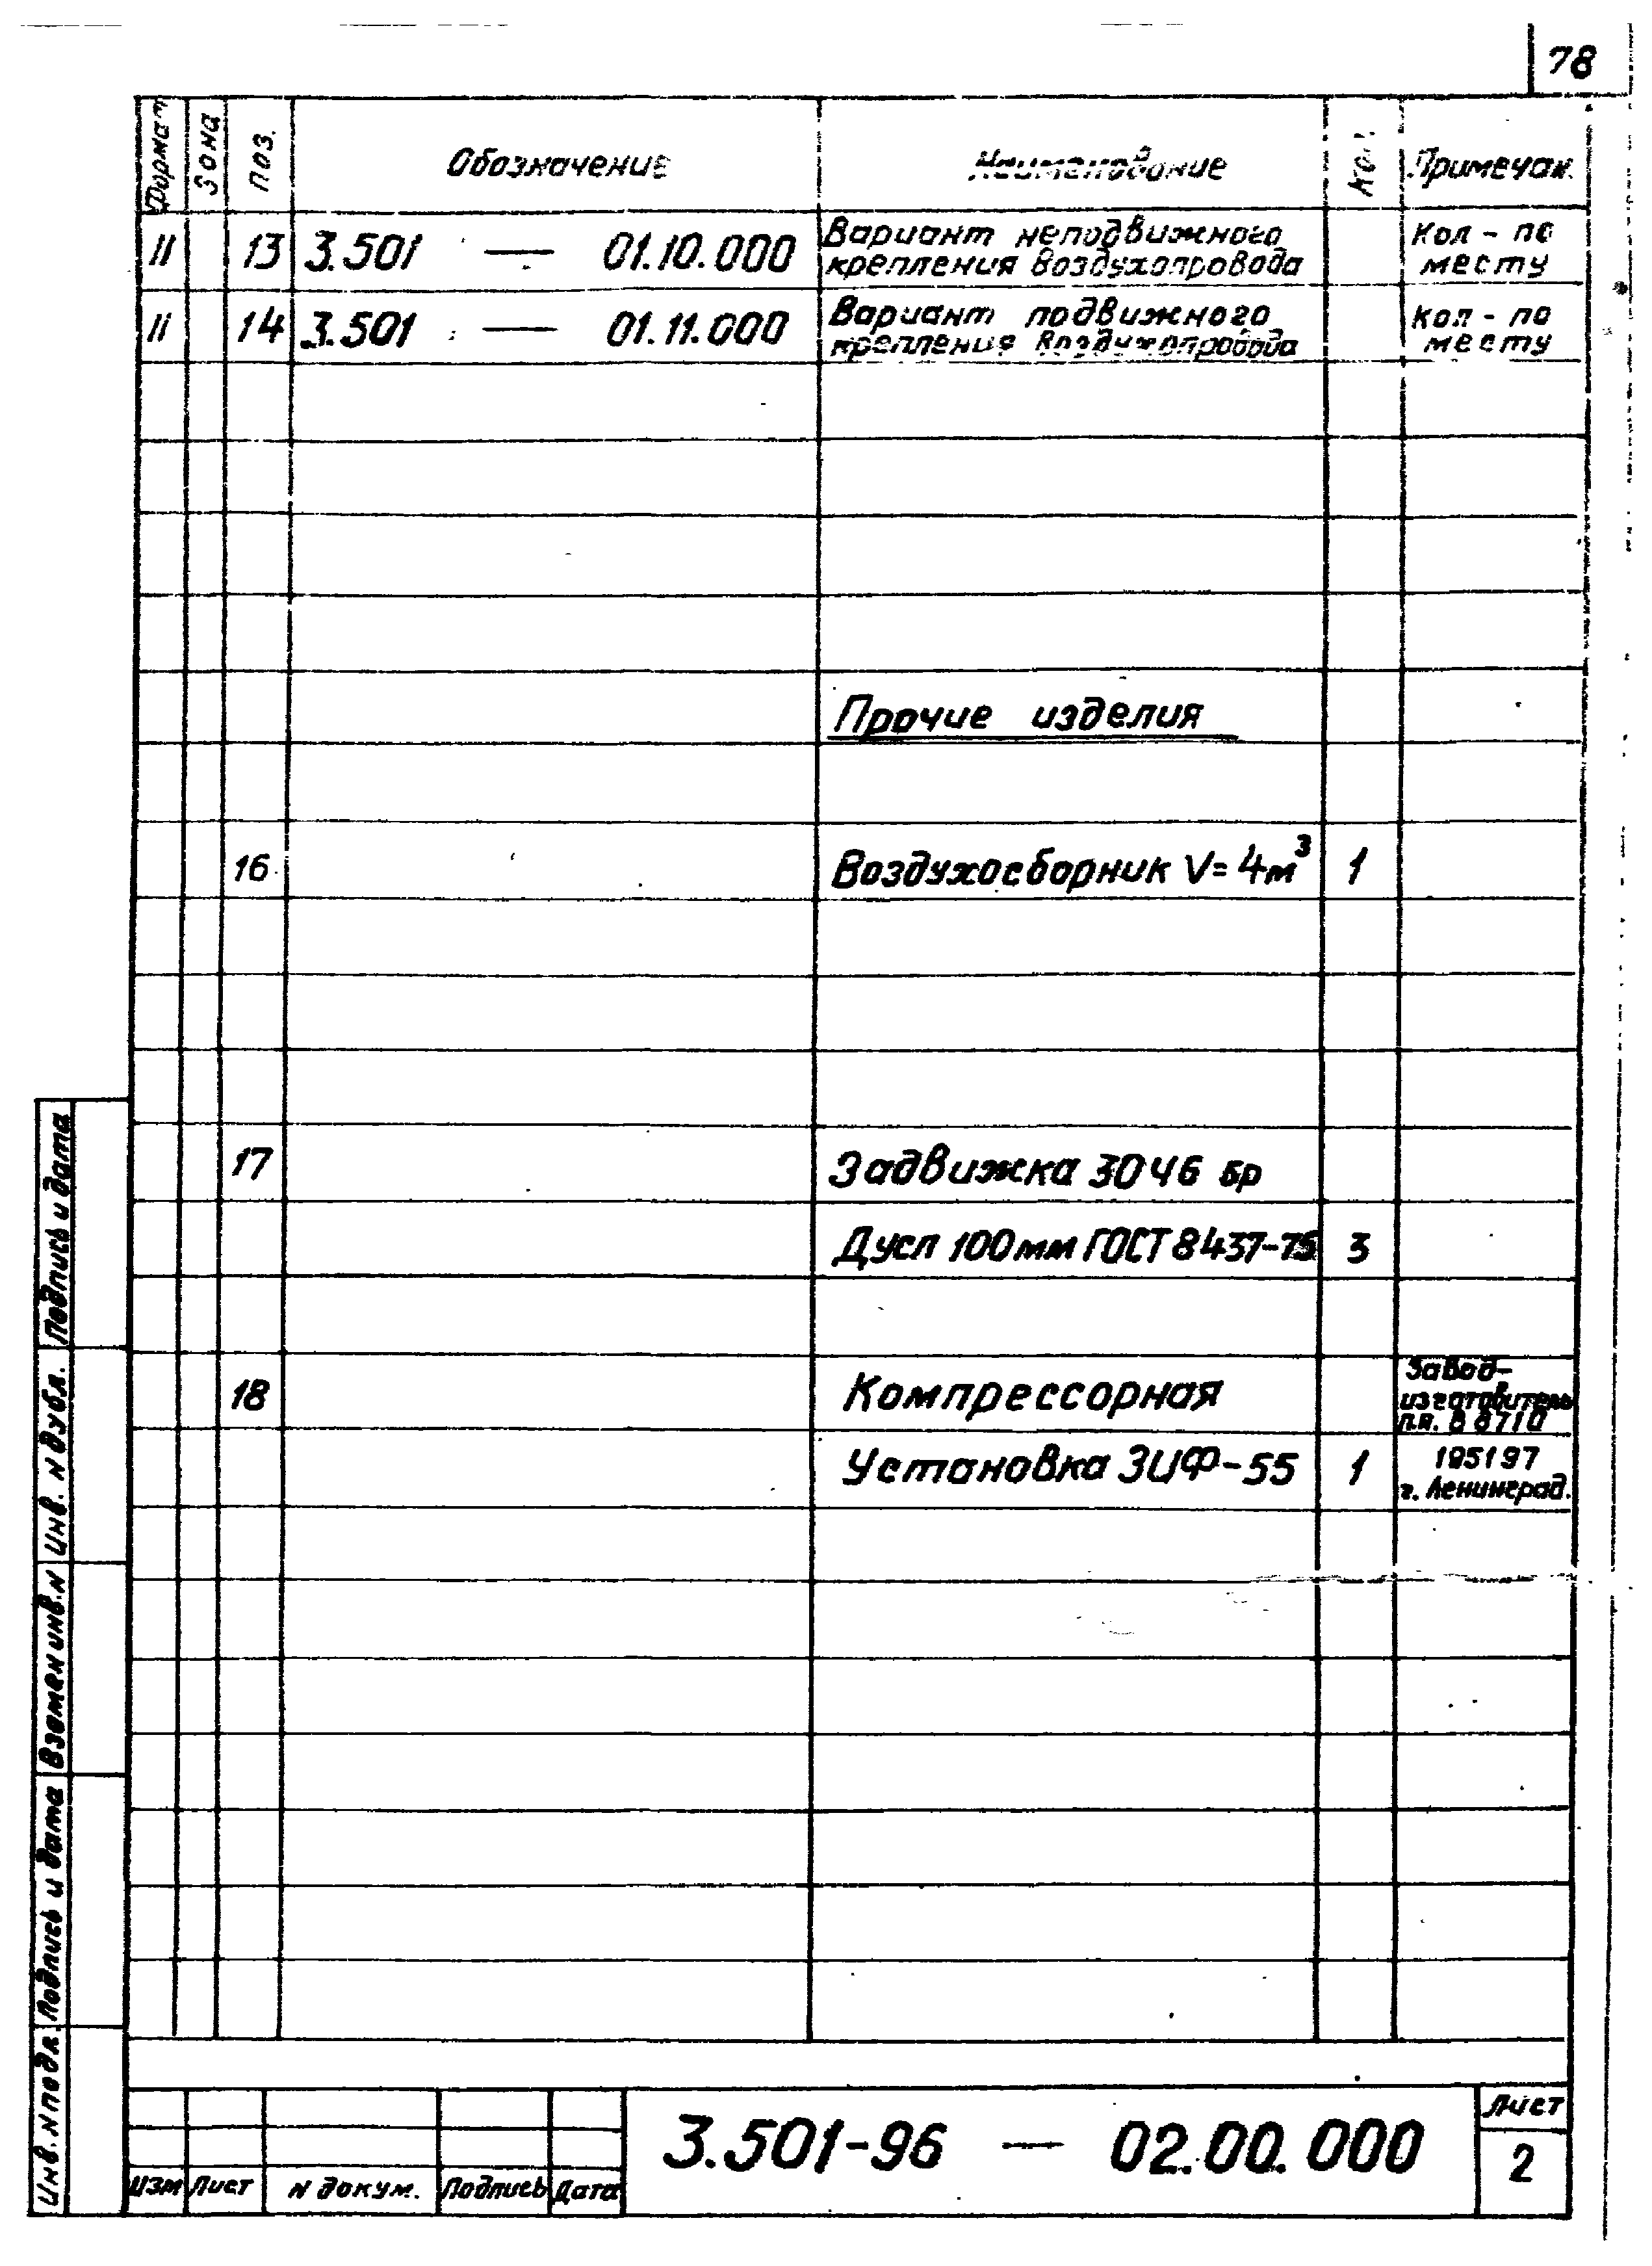 78
Формат Зона Поз. Обозначение Наименование Кол. Примечан.
11 13 3.501 — 01.10.000 Вариант неподвижного крепления воздухопровода Кол - по месту
11 14 3.501 — 01.11.000 Вариант подвижного крепления воздухопровода Кол - по месту
Прочие изделия
16 Воздухосборник V= 4м³ 1
17 Задвижка 30ч6 бр
Дусл 100мм ГОСТ 8437-75 3
18 Компрессорная Завод-изготовитель п.я. В 8710
Установка ЗИФ-55 1 195197 г. Ленинград.
Подпись и дата
Инв. N дубл.
Взамен инв. N
Подпись и дата
Инв. N подл.
Изм Лист N докум. Подпись Дата
3.501-96 — 02.00.000
Лист
2